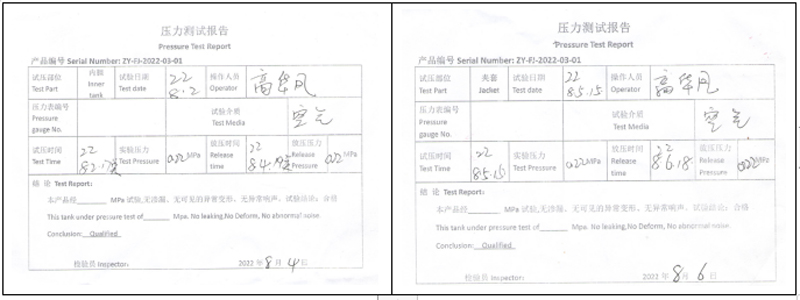 压力测试报告
Pressure Test Report
产品编号 Serial Number: ZY-FJ-2022-03-01
试压部位 内胆 试验日期 22 操作人员 高华凤
Test Part Inner tank Test date 8.2 Operator
压力表编号 试验介质 空气
Pressure gauge No. Test Media
试压时间 22 实验压力 放压时间 22 放压压力
Test Time 8.2 Test Pressure 0.22 MPa Release time 8.4 Release Pressure 0.22 MPa
结 论 Test Report:
本产品经______ MPa 试验,无渗漏、无可见的异常变形、无异常响声, 试验结论: 合格
This tank under pressure test of______ Mpa. No leaking,No Deform, No abnormal noise.
Conclusion: Qualified
检验员 Inspector: 2022 年 8 月 4 日
压力测试报告
Pressure Test Report
产品编号 Serial Number: ZY-FJ-2022-03-01
试压部位 夹套 试验日期 22 操作人员 高华凤
Test Part Jacket Test date 8.5.15 Operator
压力表编号 试验介质 空气
Pressure gauge No. Test Media
试压时间 22 实验压力 放压时间 22 放压压力
Test Time 8.5.16 Test Pressure 0.22 MPa Release time 8.6.18 Release Pressure 0.22 MPa
结 论 Test Report:
本产品经______ MPa 试验,无渗漏、无可见的异常变形、无异常响声, 试验结论: 合格
This tank under pressure test of______ Mpa. No leaking,No Deform, No abnormal noise.
Conclusion: Qualified
检验员 Inspector: 2022 年 8 月 6 日